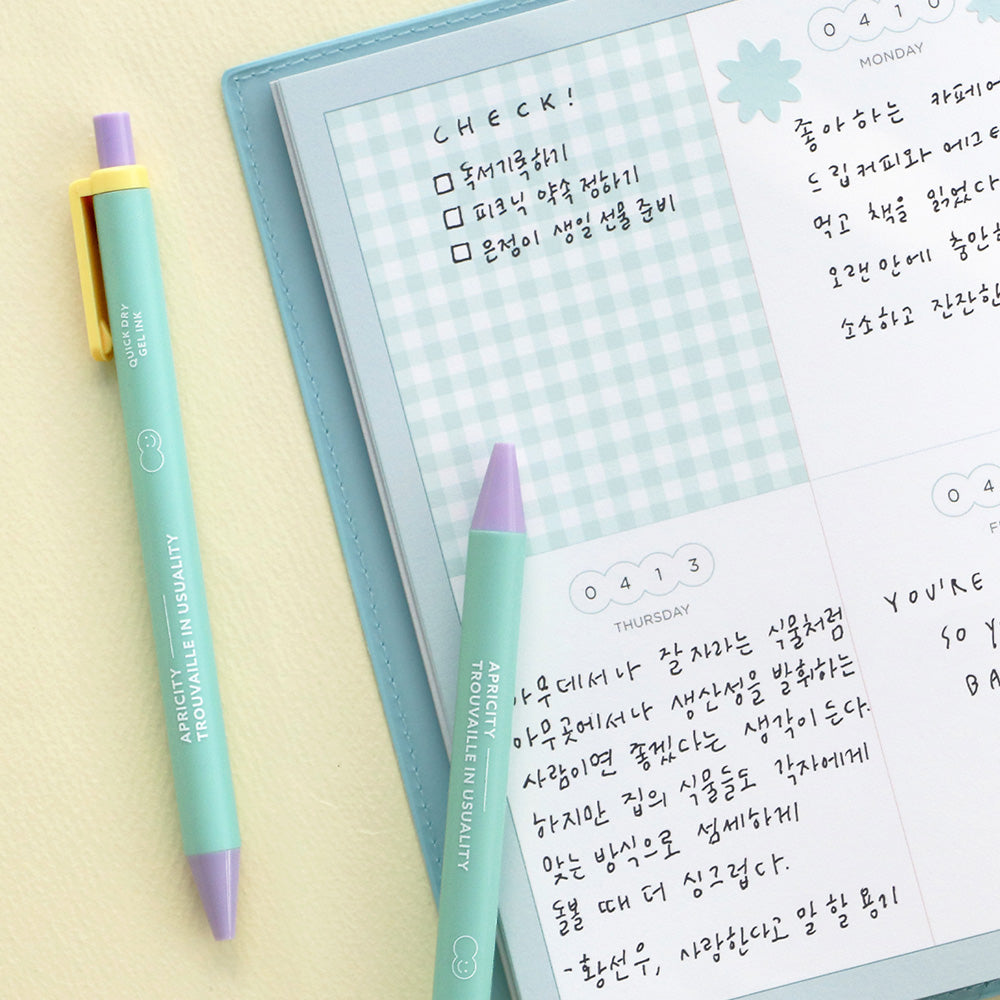 CHECK!
□ 독서기록하기
□ 피크닉 약속 정하기
□ 은정이 생일 선물 준비
0410
MONDAY
좋아하는 카페에
드립커피와 에그
먹고 책을 읽었다
오랜만에 충만한
소소하고 잔잔한
QUICK DRY
GEL INK
APRICITY
TROUVAILLE IN USUALITY
0413
THURSDAY
아무데서나 잘 자라는 식물처럼
아무곳에서나 생산성을 발휘하는
사람이면 좋겠다는 생각이 든다.
하지만 집의 식물들도 각자에게
맞는 방식으로 섬세하게
돌볼 때 더 싱그럽다.
- 황선우, 사랑한다고 말할 용기
04
F
YOU'RE
SO Y
BA
APRICITY
TROUVAILLE IN USUALITY